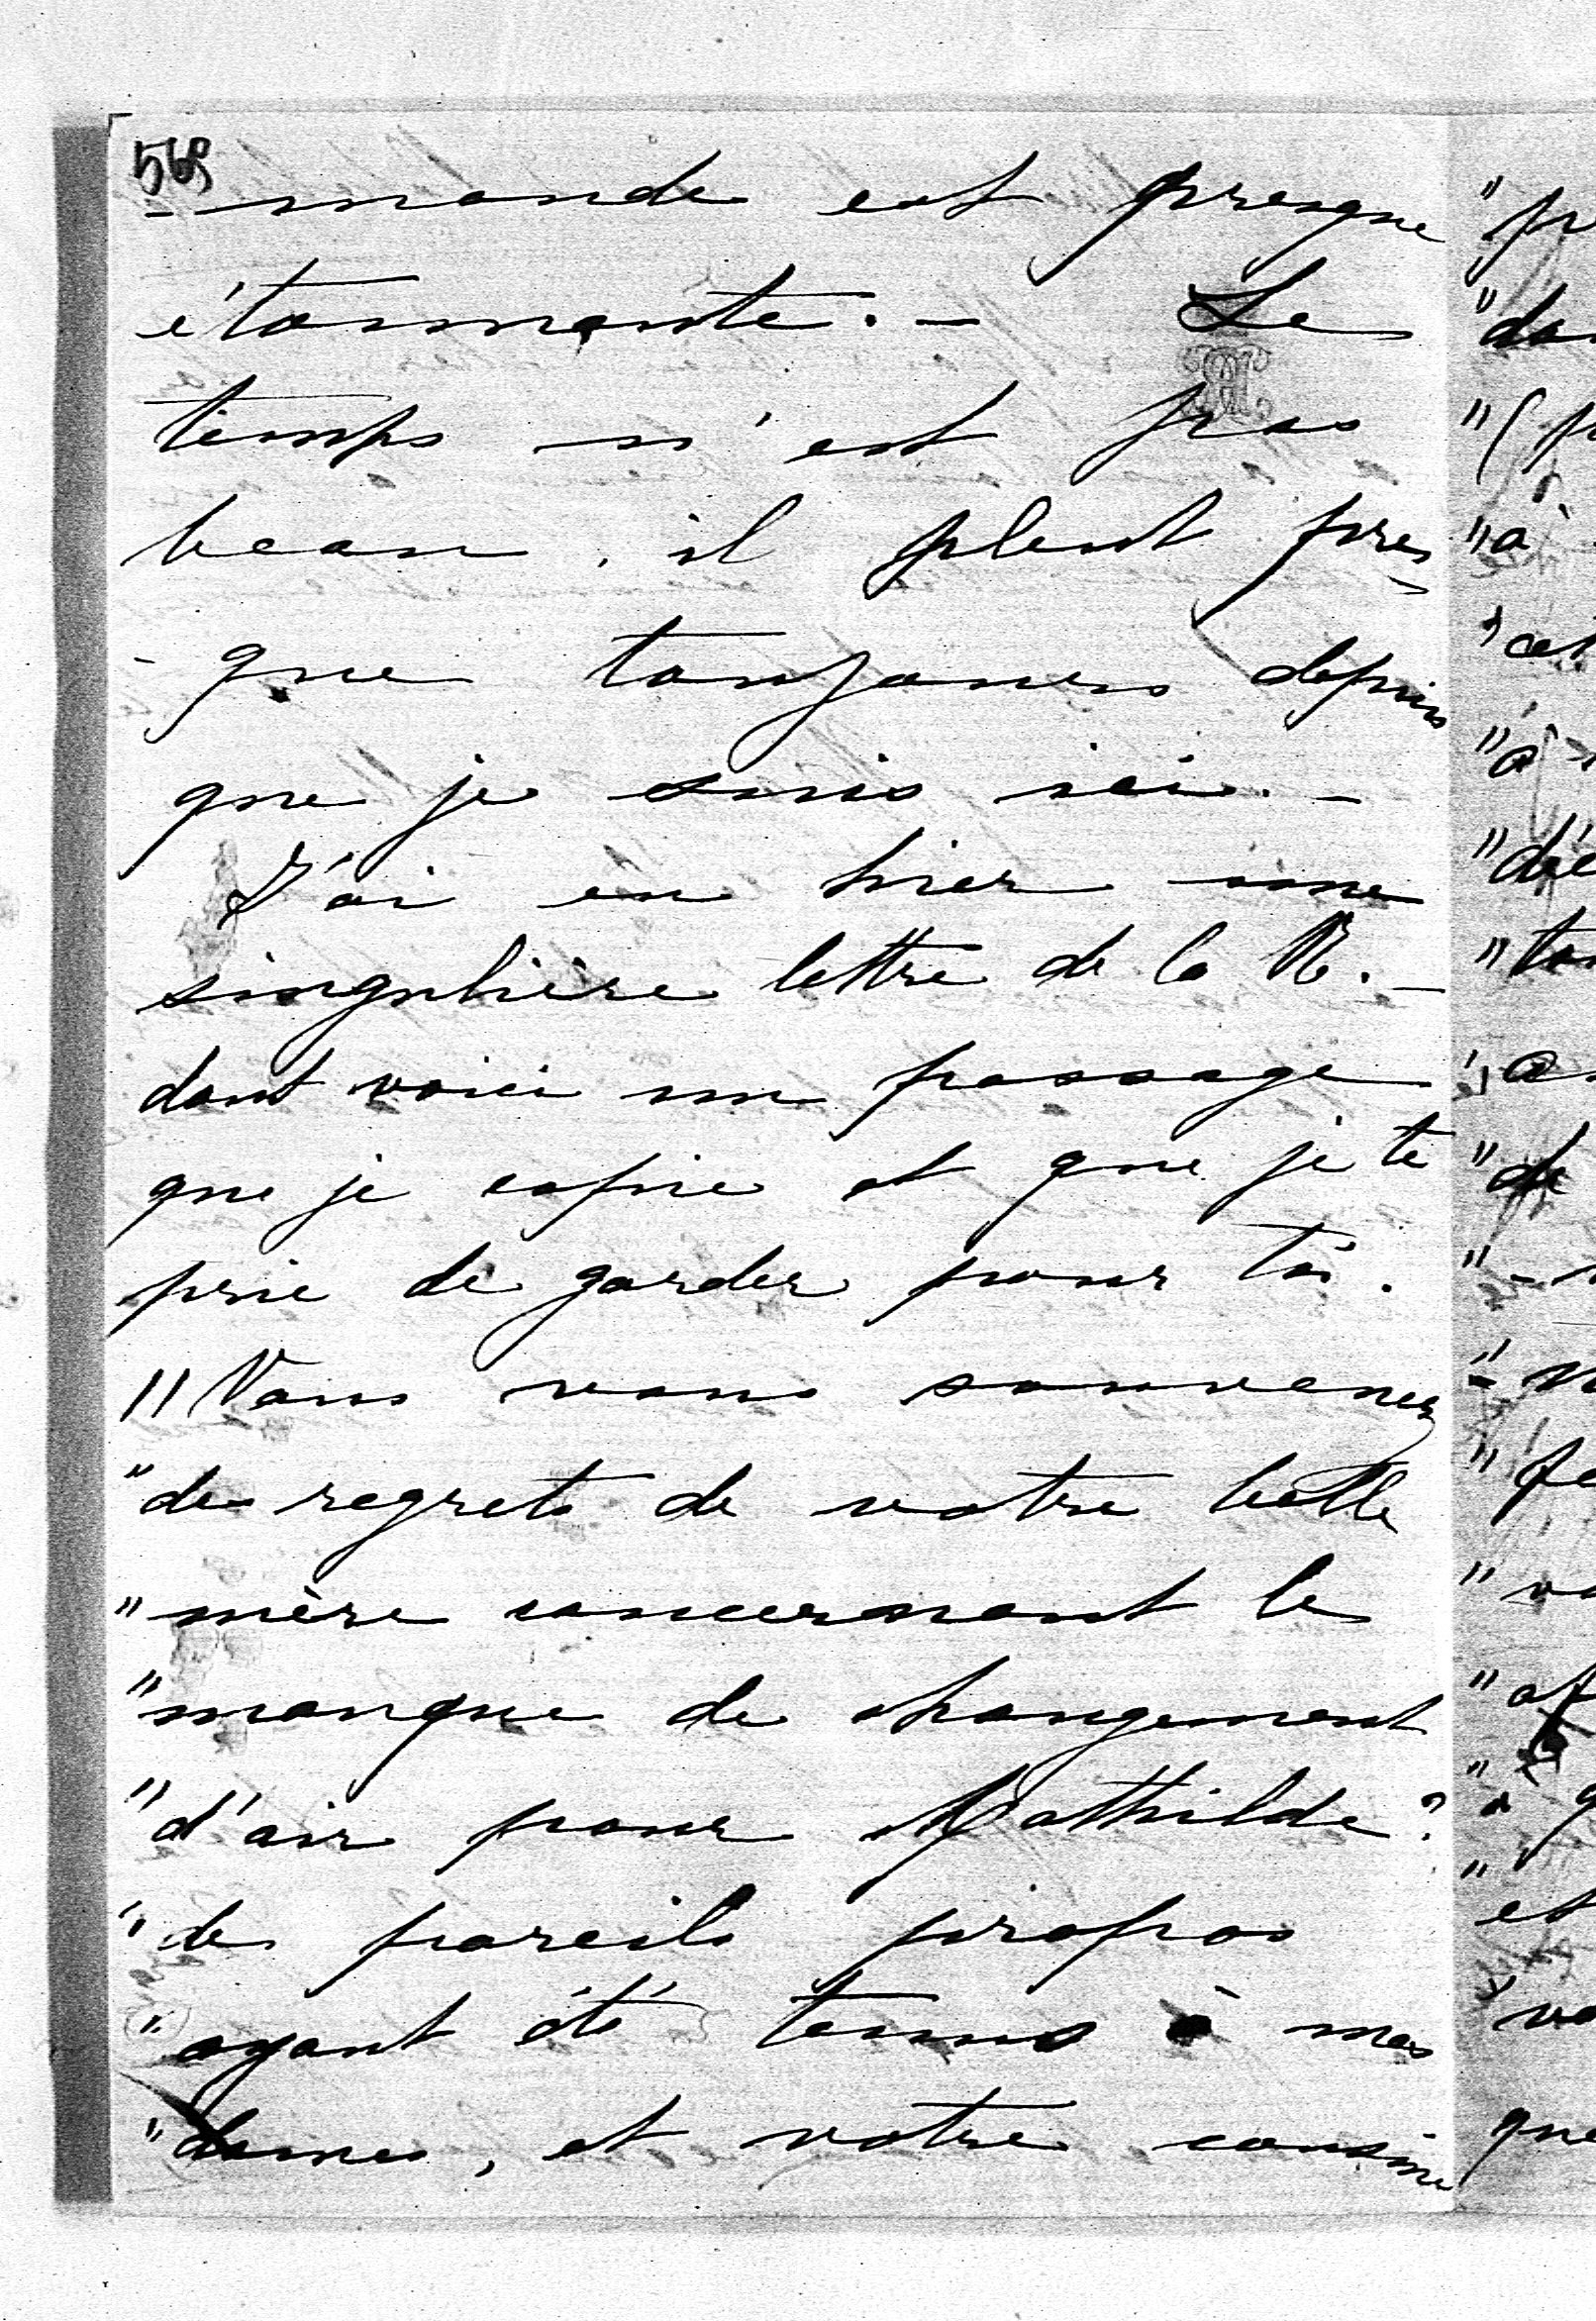 569
-mande est presque
étonnante. - Le
temps n'est pas
beau, il pleut pres
-que toujours depuis
que je suis ici. -
J'ai eu hier une
singulière lettre de la R. -
dont voici un passage
que je copie et que je te
prie de garder pour toi.
"Vous vous souvenez
"des regrets de votre belle
"mère concernant le
"manque de changement
"d'air pour Mathilde?
"de pareils propos
"ayant été tenus à mes
"dames, et votre cousine